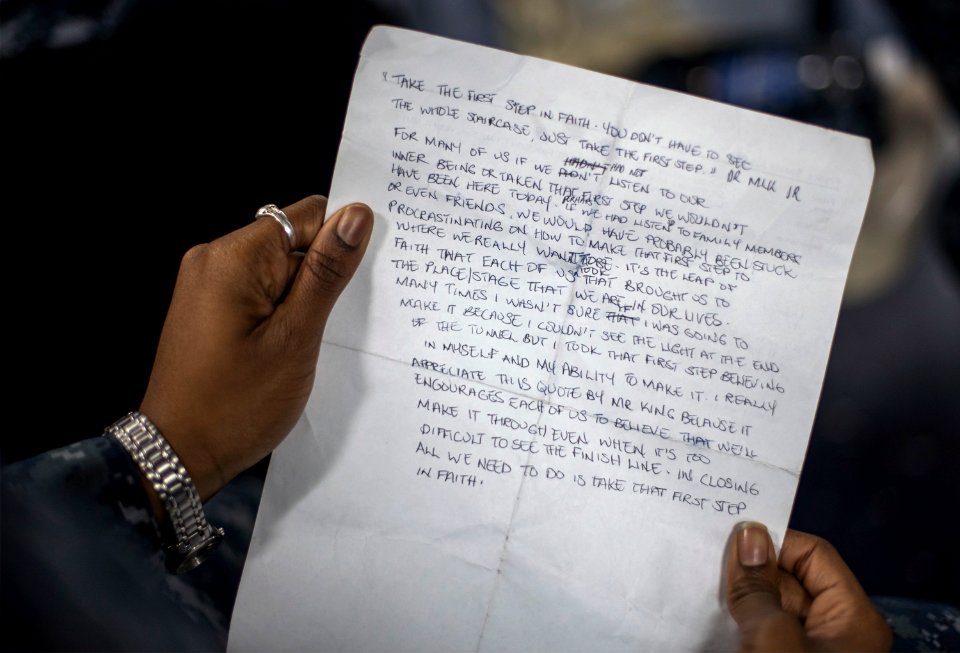 "TAKE THE FIRST STEP IN FAITH. YOU DON'T HAVE TO SEE
THE WHOLE STAIRCASE, JUST TAKE THE FIRST STEP." DR MLK JR
FOR MANY OF US IF WE DID NOT LISTEN TO OUR
INNER BEING OR TAKEN THAT FIRST STEP WE WOULDN'T
HAVE BEEN HERE TODAY. IF WE HAD LISTEN TO FAMILY MEMBERS
OR EVEN FRIENDS, WE WOULD HAVE PROBABLY BEEN STUCK
PROCRASTINATING ON HOW TO MAKE THAT FIRST STEP TO
WHERE WE REALLY WANT TO BE. IT'S THE LEAP OF
FAITH THAT EACH OF US TOOK THAT BROUGHT US TO
THE PLACE/STAGE THAT WE ARE IN OUR LIVES.
MANY TIMES I WASN'T SURE IF I WAS GOING TO
MAKE IT BECAUSE I COULDN'T SEE THE LIGHT AT THE END
OF THE TUNNEL BUT I TOOK THAT FIRST STEP BELIEVING
IN MYSELF AND MY ABILITY TO MAKE IT. I REALLY
APPRECIATE THIS QUOTE BY MR KING BECAUSE IT
ENCOURAGES EACH OF US TO BELIEVE THAT WE'LL
MAKE IT THROUGH EVEN WHEN IT'S TOO
DIFFICULT TO SEE THE FINISH LINE. IN CLOSING
ALL WE NEED TO DO IS TAKE THAT FIRST STEP
IN FAITH.